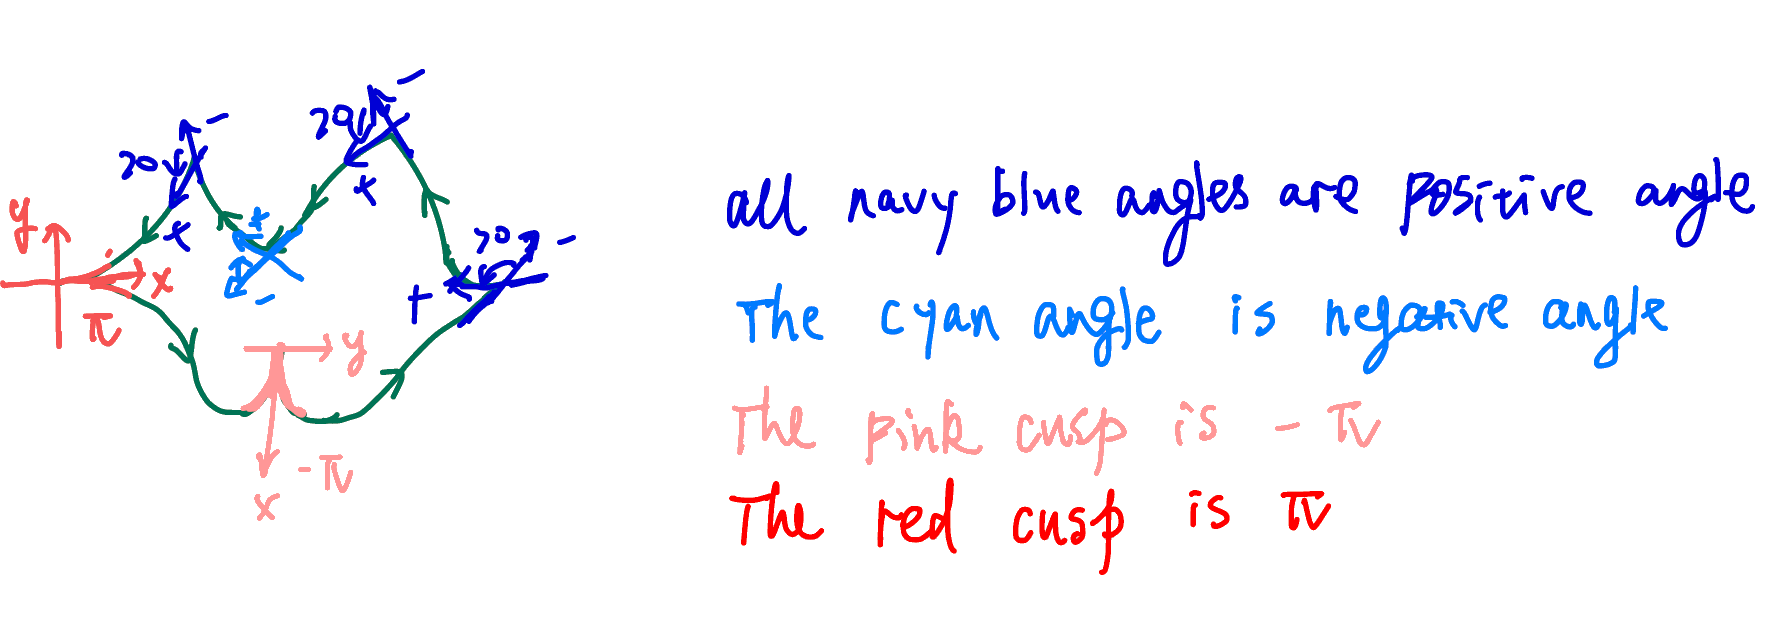 -
-
>0
>0
+
+
y
+
>0
-
x
-
+
π
y
-π
x
all navy blue angles are positive angle
The cyan angle is negative angle
The pink cusp is - π
The red cusp is π